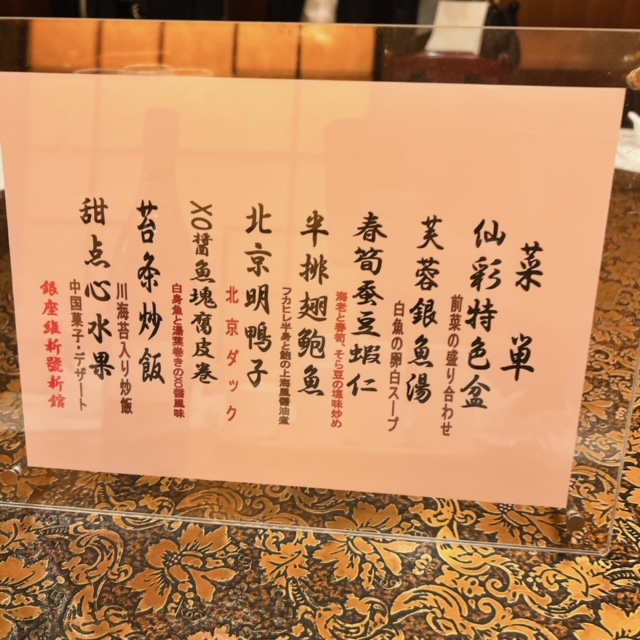 菜単
仙彩特色盆
前菜の盛り合わせ
芙蓉銀魚湯
白魚の卵白スープ
春筍蚕豆蝦仁
海老と春筍、そら豆の塩味炒め
半排翅鮑魚
フカヒレ半身と鮑の上海風醤油煮
北京明鴨子
北京ダック
XO醤魚塊腐皮巻
白身魚と湯葉巻きのXO醤風味
苔条炒飯
川海苔入り炒飯
甜点心水果
中国菓子・デザート
銀座維新號新館